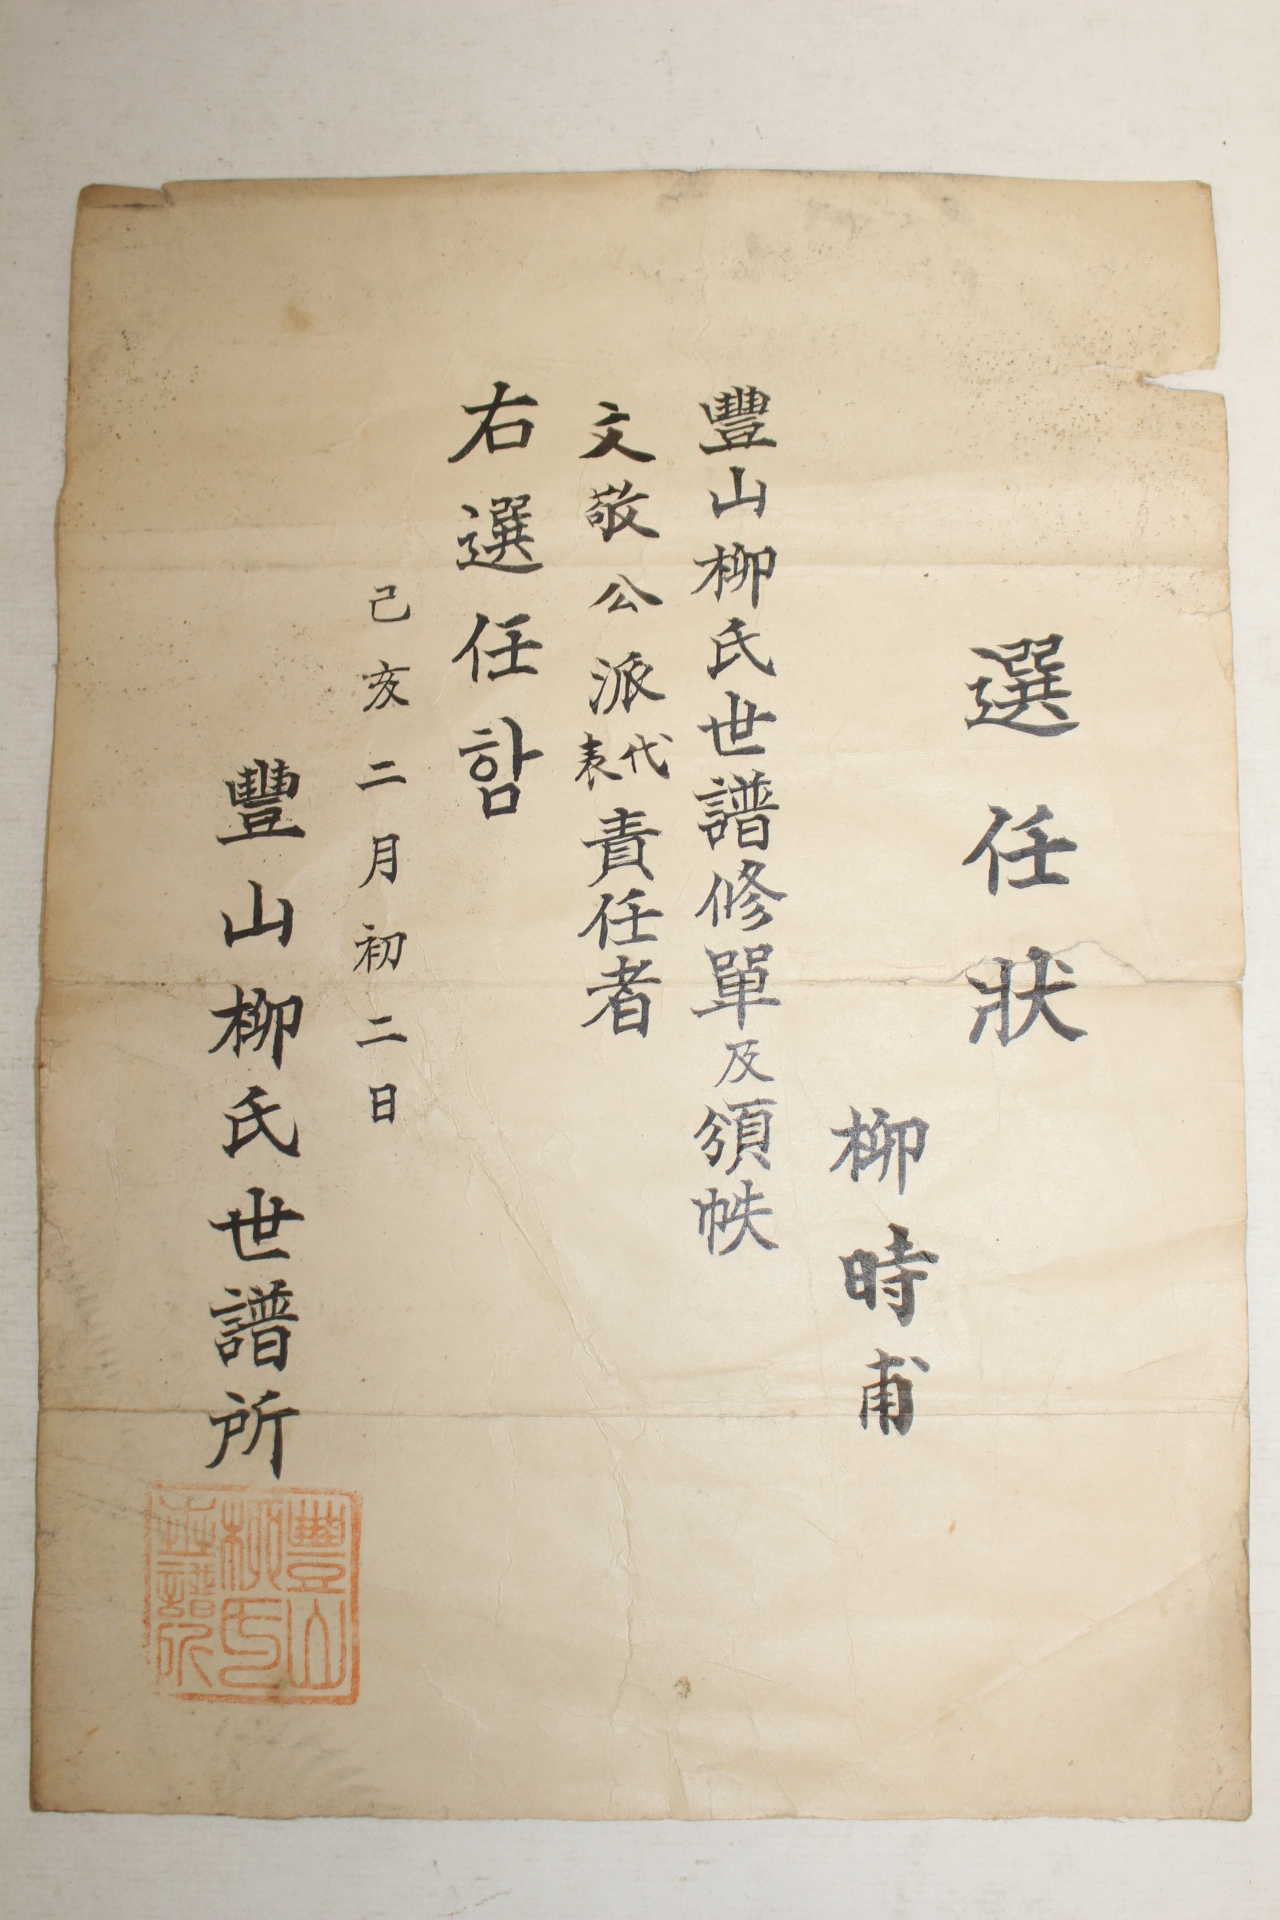 選任狀
柳時甫
豐山柳氏世譜修單及頒帙
文敬公派代表責任者
右選任함
己亥二月初二日
豐山柳氏世譜所
豐山
柳氏
世譜所